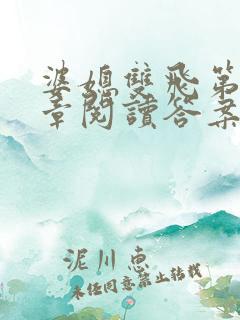 婆媳雙飛第
章閱讀答案
泥川惠
未经同意禁止转载